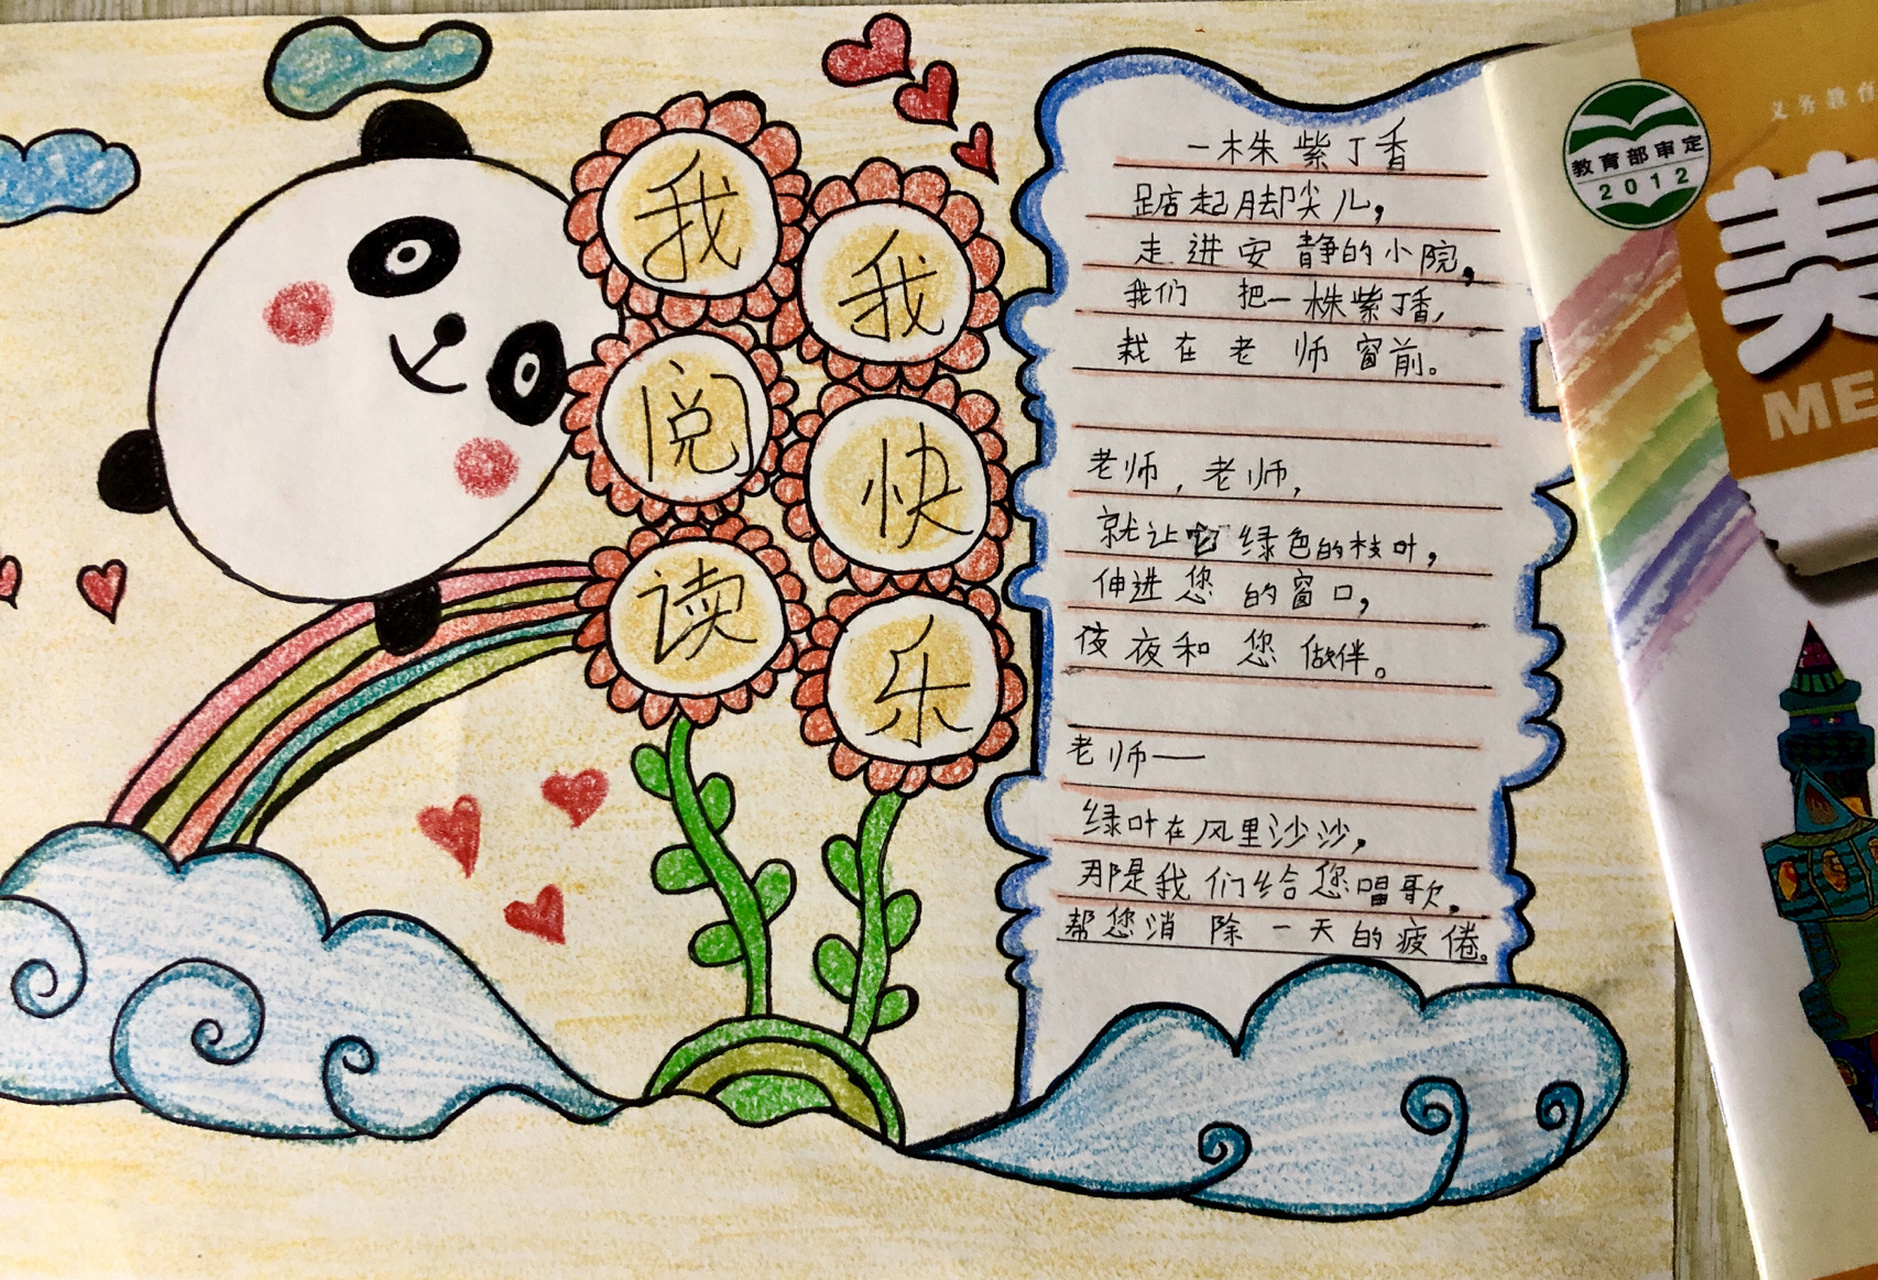 我阅读
我快乐
一株紫丁香
踮起脚尖儿,
走进安静的小院,
我们把一株紫丁香,
栽在老师窗前。
老师,老师,
就让它绿色的枝叶,
伸进您的窗口,
夜夜和您做伴。
老师——
绿叶在风里沙沙,
那是我们给您唱歌,
帮您消除一天的疲倦。
教育部审定
2012
义务教育
美
ME